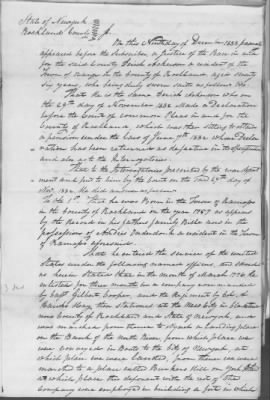 State of Newyork
Rockland County
On this Ninth day of Decem 1833 personally
appeared before the Subscriber a Justice of the Peace in with
for the said County Derick Ackerson a resident of the
Town of in the County of Rockland aged seventy
six years, who being duly sworn saith as follows Viz
That He is the same Derick Ackerson who on
the 29th day of November 1832 Made a Declaration
before the Court of Common Pleas in and for the
County of Rockland which was then sitting to obtain
a pension under the law of June 7th 1832 which Decla
rations has been returned as defective in
and also as to the Interrogatories
That to the Interrogatories presented by the war depart
ment and put to him by the Court on the said 29th day of
Nov. 1832 He did answer as follows
To the 1st That he was Born in the Town of Ramapo
in the County of Rockland in the year 1757 as appears
by the Record in his father's family Bible now in the
possession of a resident in the Town
of Ramapo aforesaid
That he entered the service of the united
States under the following named officers and served
as herein Stated that in the month of March 1776 he
enlisted for three months in a company commanded
by Capt Gilbert Cooper, and the Regiment by Col. A
Hawks Hay, was stationed at the west side in Haverstraw
County of Rockland and State of Newyork, and
was marched from thence to Nyack a Landing place
on the Bank of the North River from which place we
were conveyed in Boats to the City of Newyork, at
which place we were Landed, from thence we were
marched to a place called Bunkers Hill on york Island
at which place this deponent with the rest of the
Company were employed in building a fort in which